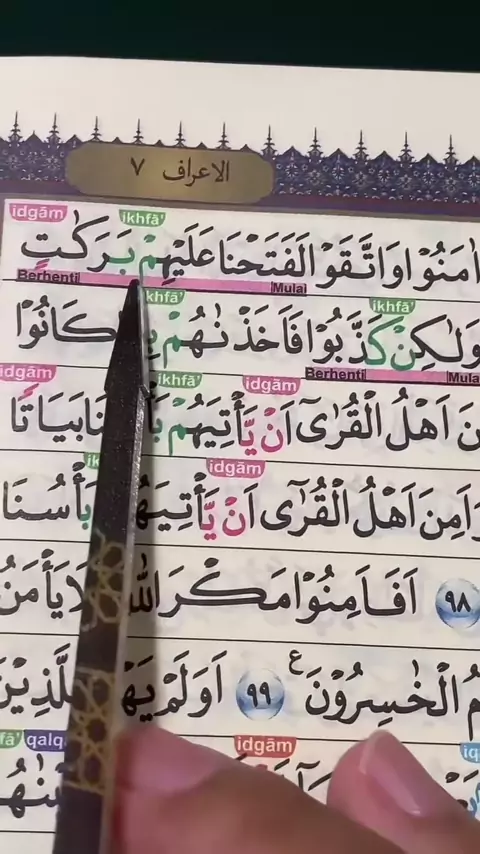 الاعراف ٧
idgām ikhfā'
اٰمَنُوْا وَاتَّقَوْا لَفَتَحْنَا عَلَيْهِمْ بَرَكٰتٍ
Berhenti Mulai
ikhfā' ikhfā'
وَلٰكِنْ كَذَّبُوْا فَاَخَذْنٰهُمْ كَانُوْا
Berhenti Mula
idgām ikhfā' idgām
اَهْلُ الْقُرٰٓى اَنْ يَّأْتِيَهُمْ بَيَاتًا
idgām
اَمِنَ اَهْلُ الْقُرٰٓى اَنْ يَّأْتِيَهُ بَأْسُنَا
٩٨ اَفَاَمِنُوْا مَكْرَ اللّٰ يَأْمَنُ
الْخٰسِرُوْنَ ع ٩٩ اَوَلَمْ
qalq idgām